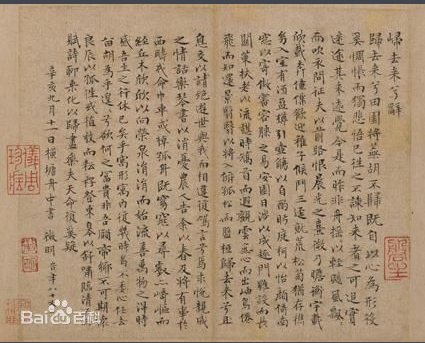 歸去來兮辭
歸去來兮田園將蕪胡不歸既自以心為形役
奚惆悵而獨悲悟已往之不諫知來者之可追實
迷途其未遠覺今是而昨非舟搖搖以輕颺風飄飄
而吹衣問征夫以前路恨晨光之熹微乃瞻衡宇載
欣載奔僮僕歡迎稚子候門三逕就荒松菊猶存攜
幼入室有酒盈樽引壺觴以自酌眄庭柯以怡顏倚南
窗以寄傲審容膝之易安園日涉以成趣門雖設而長
關策扶老以流憩時矯首而遐觀雲無心而出岫鳥倦
飛而知還景翳翳以將入撫孤松而盤桓歸去來兮且
息交以請絕遊世與我而相違復駕言兮焉求悅親戚
之情話樂琴書以消憂農人告余以春及將有事於
西疇或命巾車或棹孤舟既窈窕以尋壑亦崎嶇而
經丘木欣欣以向榮泉涓涓而始流善萬物之得時
感吾生之行休已矣乎寓形宇內復幾時曷不委心任去
留胡為乎遑遑兮欲何之富貴非吾願帝鄉不可期懷
良辰以孤往或植杖而耘耔登東皋以舒嘯臨清流
賦詩聊乘化以歸盡樂夫天命復奚疑
辛亥九月一日橫塘舟中書 徵明
Bai百科